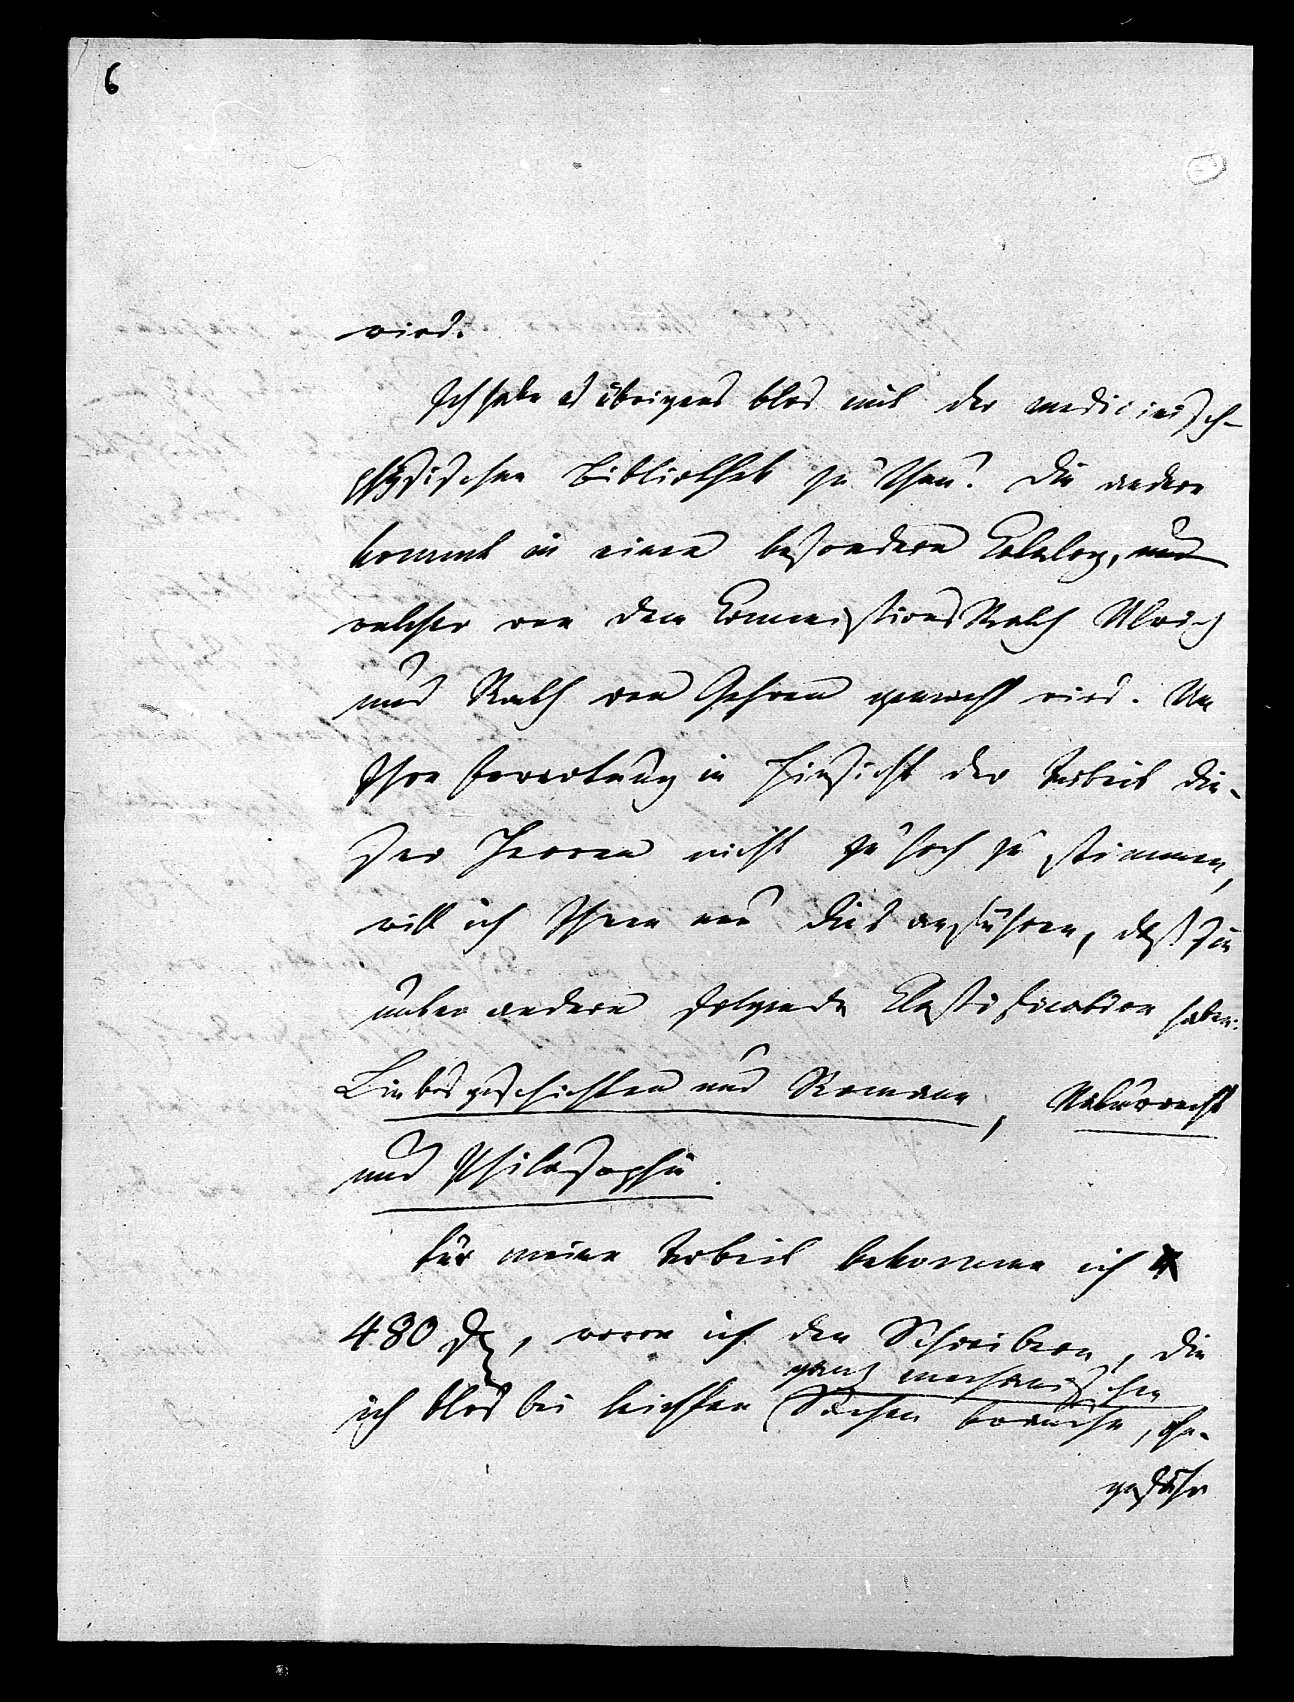 6
wird.
Ich habe es übrigens blos mit der medicinisch-
physischen Bibliothek zu thun. Die andere
kommt in einen besondern Catalog, und
welcher von dem CommissionsRath Ulrich
und Rath von Gehren gemacht wird. Um
Ihre Erwartung in Hinsicht der Arbeit die-
ser Herren nicht zu hoch zu stimmen,
will ich Ihnen nur dies anführen, daß sie
unter andern folgende Classification haben:
Liebesgeschichten und Romane, Naturrecht
und Philosophie.
Für meine Arbeit bekomme ich
480 , wovon ich den Schreibern, die
ganz mechanischen
ich blos bei leichten Sachen brauche, ohn-
gefähr